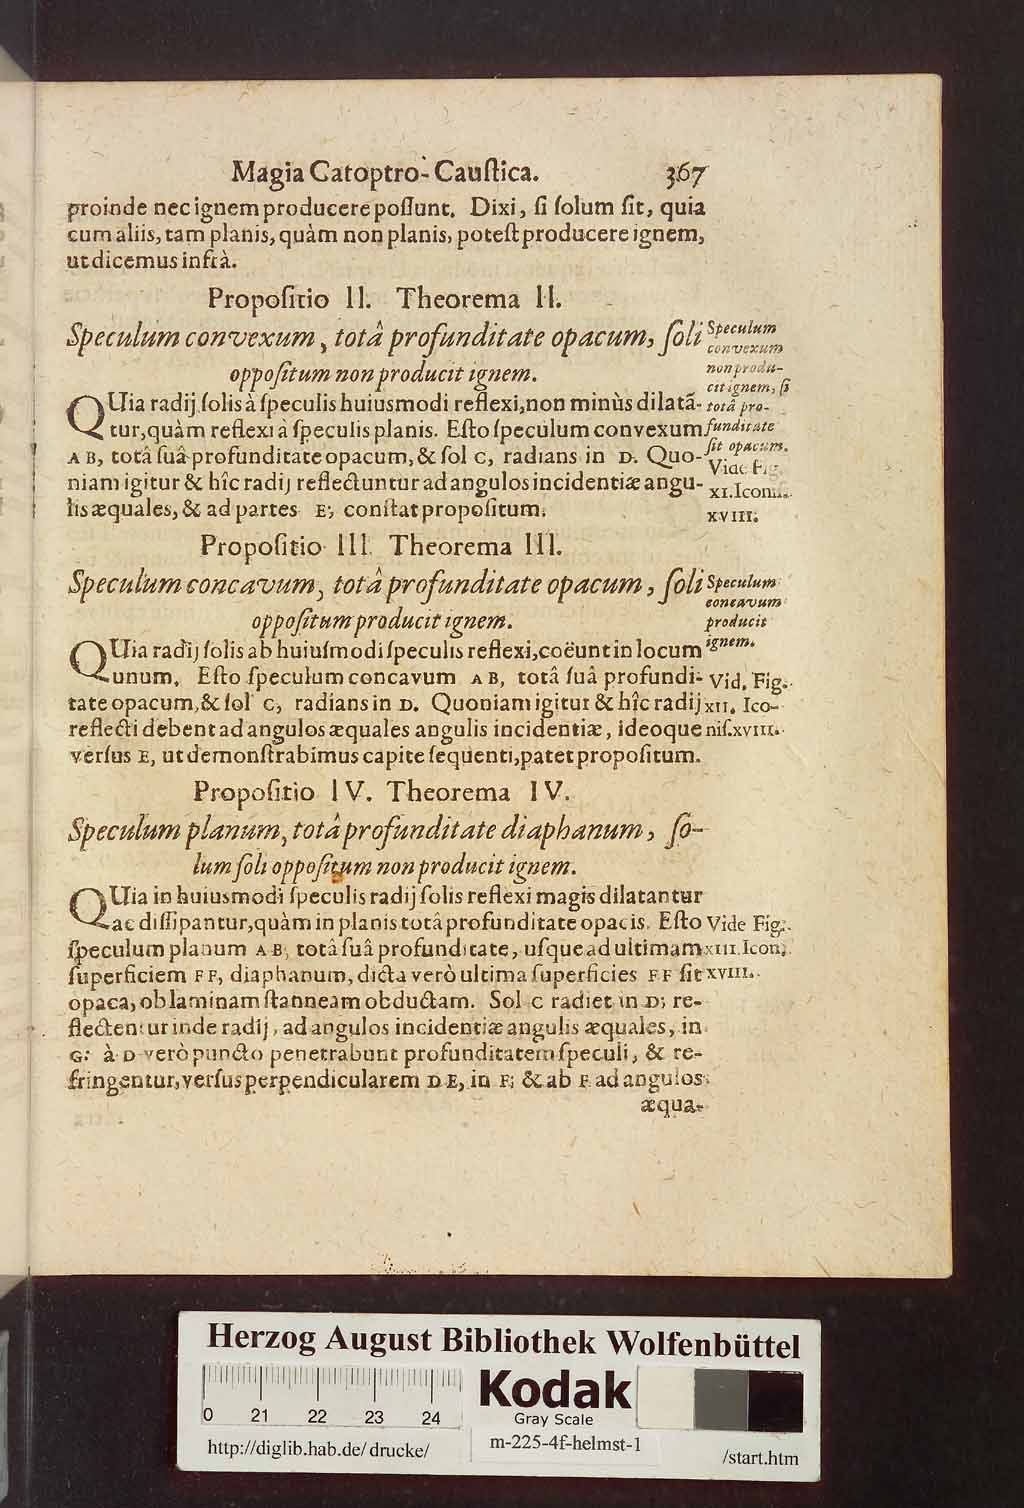 Magia Catoptro-Cauſtica. 367
proinde nec ignem producere poſſunt. Dixi, ſi ſolum ſit, quia
cum aliis, tam planis, quàm non planis, poteſt producere ignem,
ut dicemus infrà.
Propoſitio II. Theorema II.
Speculum convexum, totâ profunditate opacum, ſoli
oppoſitum non producit ignem.
Speculum
convexum
non produ-
cit ignem, ſi
totâ pro-
funditate
ſit opacum.
Vide Fig.
XI. Iconiſ.
XVIII.
QUia radij ſolis à ſpeculis huiusmodi reflexi, non minùs dilatã-
tur, quàm reflexi à ſpeculis planis. Eſto ſpeculum convexum
A B, totâ ſuâ profunditate opacum, & ſol C, radians in D. Quo-
niam igitur & hîc radij reflectuntur ad angulos incidentiæ angu-
lis æquales, & ad partes E; conſtat propoſitum.
Propoſitio III. Theorema III.
Speculum concavum, totâ profunditate opacum, ſoli
oppoſitum producit ignem.
Speculum
concavum
producit
ignem.
Vid. Fig.
XII. Ico-
niſ. XVIII.
QUia radij ſolis ab huiuſmodi ſpeculis reflexi, coëunt in locum
unum. Eſto ſpeculum concavum A B, totâ ſuâ profundi-
tate opacum, & ſol C, radians in D. Quoniam igitur & hîc radij
reflecti debent ad angulos æquales angulis incidentiæ, ideoque
verſus E, ut demonſtrabimus capite ſequenti, patet propoſitum.
Propoſitio IV. Theorema IV.
Speculum planum, totâ profunditate diaphanum, ſo-
lum ſoli oppoſitum non producit ignem.
QUia in huiusmodi ſpeculis radij ſolis reflexi magis dilatantur
ac diſſipantur, quàm in planis totâ profunditate opacis. Eſto
ſpeculum planum A B, totâ ſuâ profunditate, uſque ad ultimam
ſuperficiem F F, diaphanum, dicta verò ultima ſuperficies F F ſit
opaca, ob laminam ſtanneam obductam. Sol C radiet in D; re-
flectentur inde radij, ad angulos incidentiæ angulis æquales, in
G: à D verò puncto penetrabunt profunditatem ſpeculi, & re-
fringentur, verſus perpendicularem D E, in F; & ab F ad angulos
æqua-
Vide Fig.
XIII. Icon.
XVIII.
Herzog August Bibliothek Wolfenbüttel
0 21 22 23 24
Kodak
Gray Scale
http://diglib.hab.de/drucke/
m-225-4f-helmst-1
/start.htm